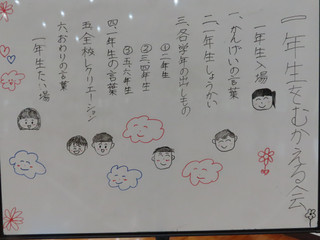 一年生をむかえる会
一年生入場
一、かんげいの言葉
二、一年生しょうかい
三、各学年の出しもの
①二年生
②三、四年生
③五、六年生
四、一年生の言葉
五、全校レクリエーション
六、おわりの言葉
一年生たい場